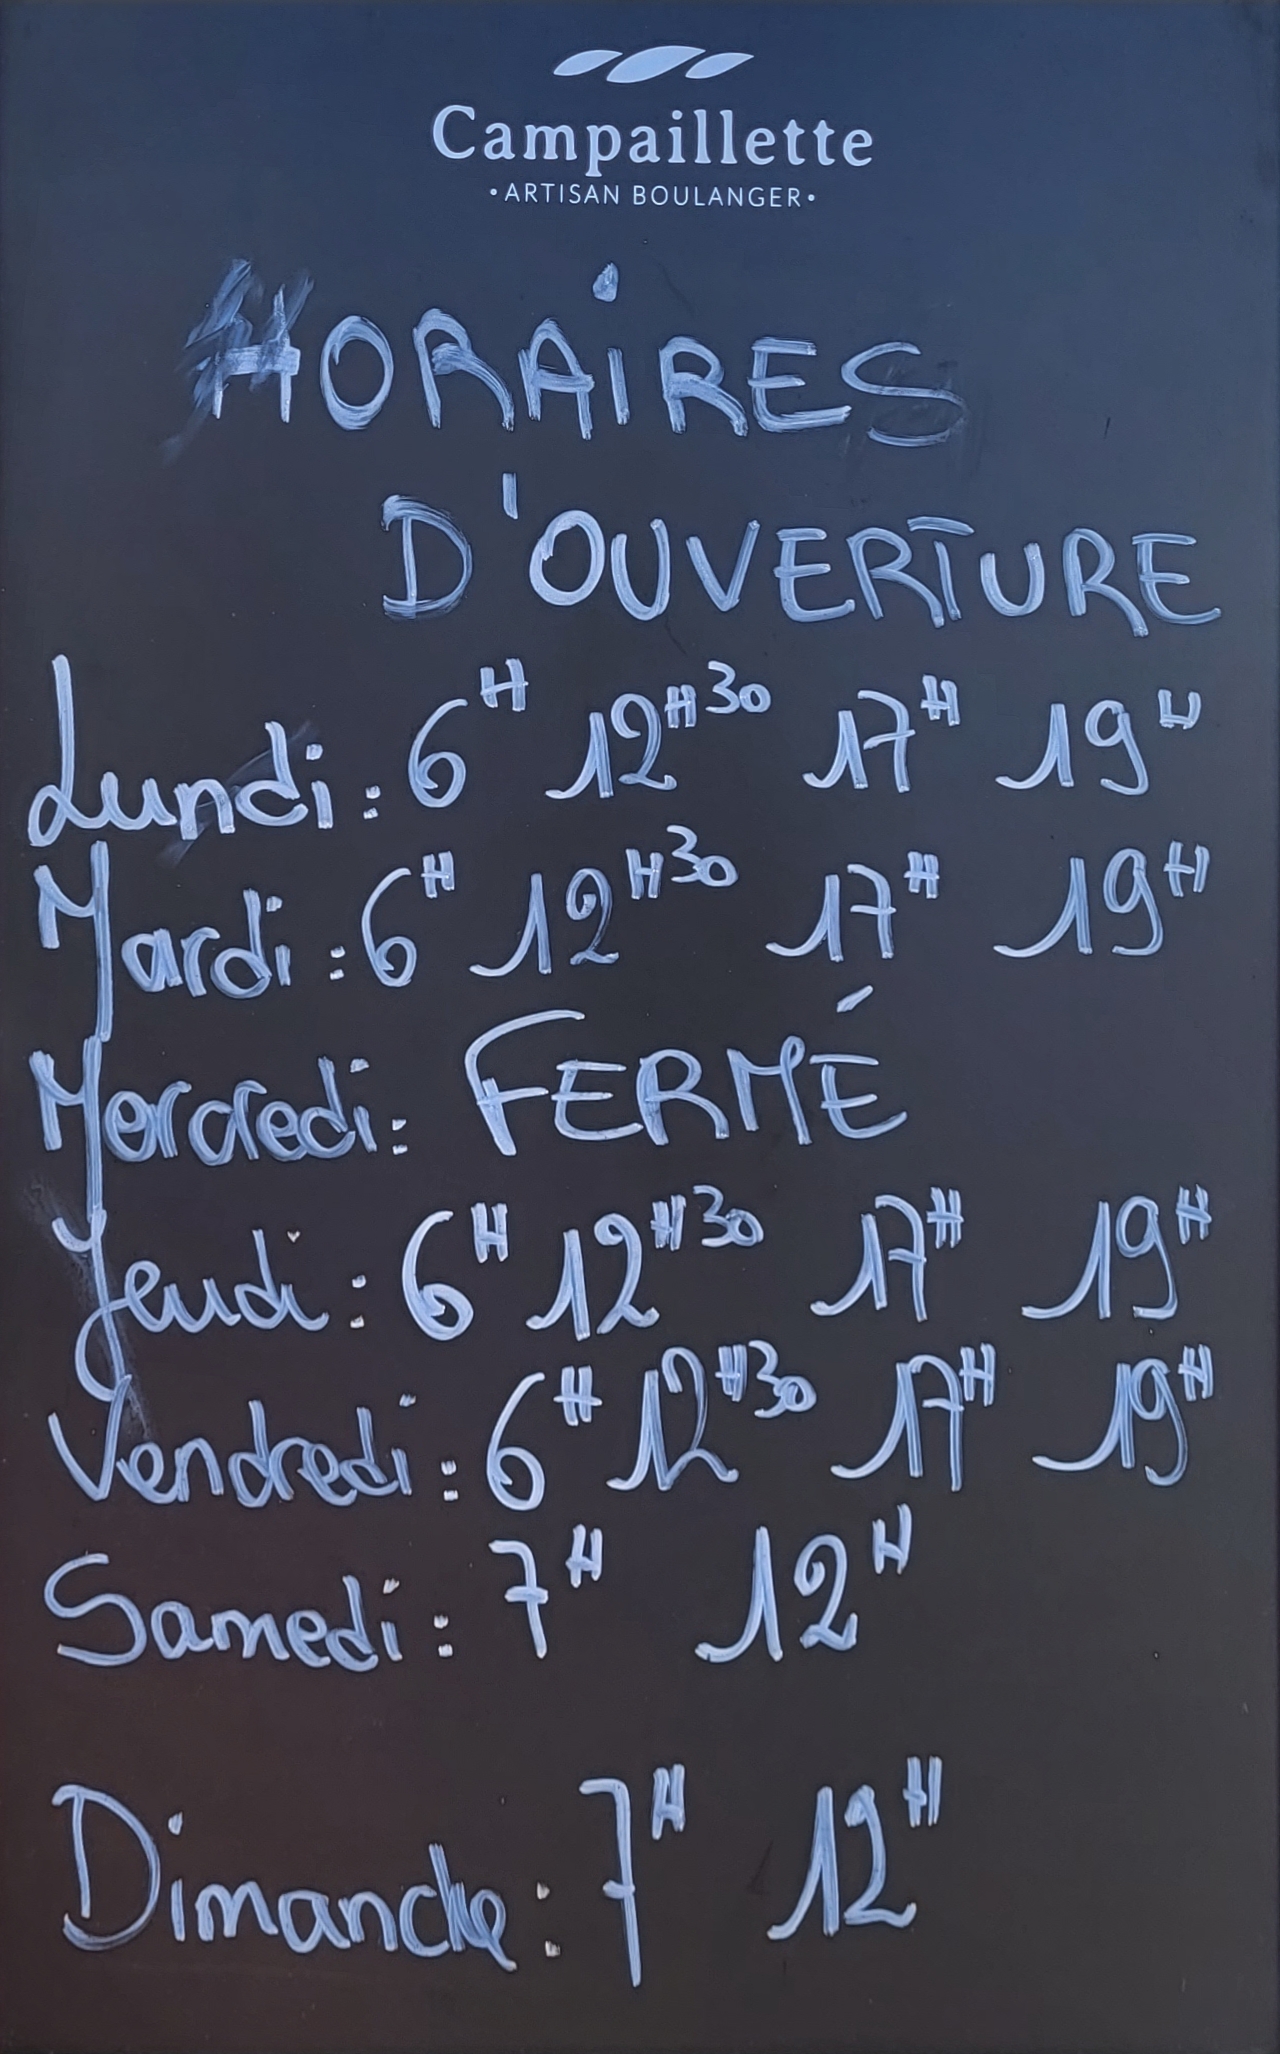 Campaillette
•ARTISAN BOULANGER•
HORAiRES
D'OUVERTURE
Lundi : 6H 12H30 17H 19H
Mardi : 6H 12H30 17H 19H
Mercredi : FERMÉ
Jeudi : 6H 12H30 17H 19H
Vendredi : 6H 12H30 17H 19H
Samedi : 7H 12H
Dimanche : 7H 12H